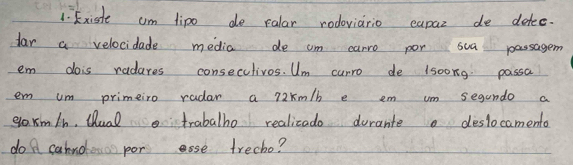 1- Existe um tipo de ralar rodoviário capaz de detec-
tar a velocidade média de um carro por sua passagem
em dois radares consecutivos. Um carro de 1500kg. passa
em um primeiro radar a 72km/h e em um segundo a
90km/h. Qual o trabalho realizado durante o deslocamento
do carro por esse trecho?